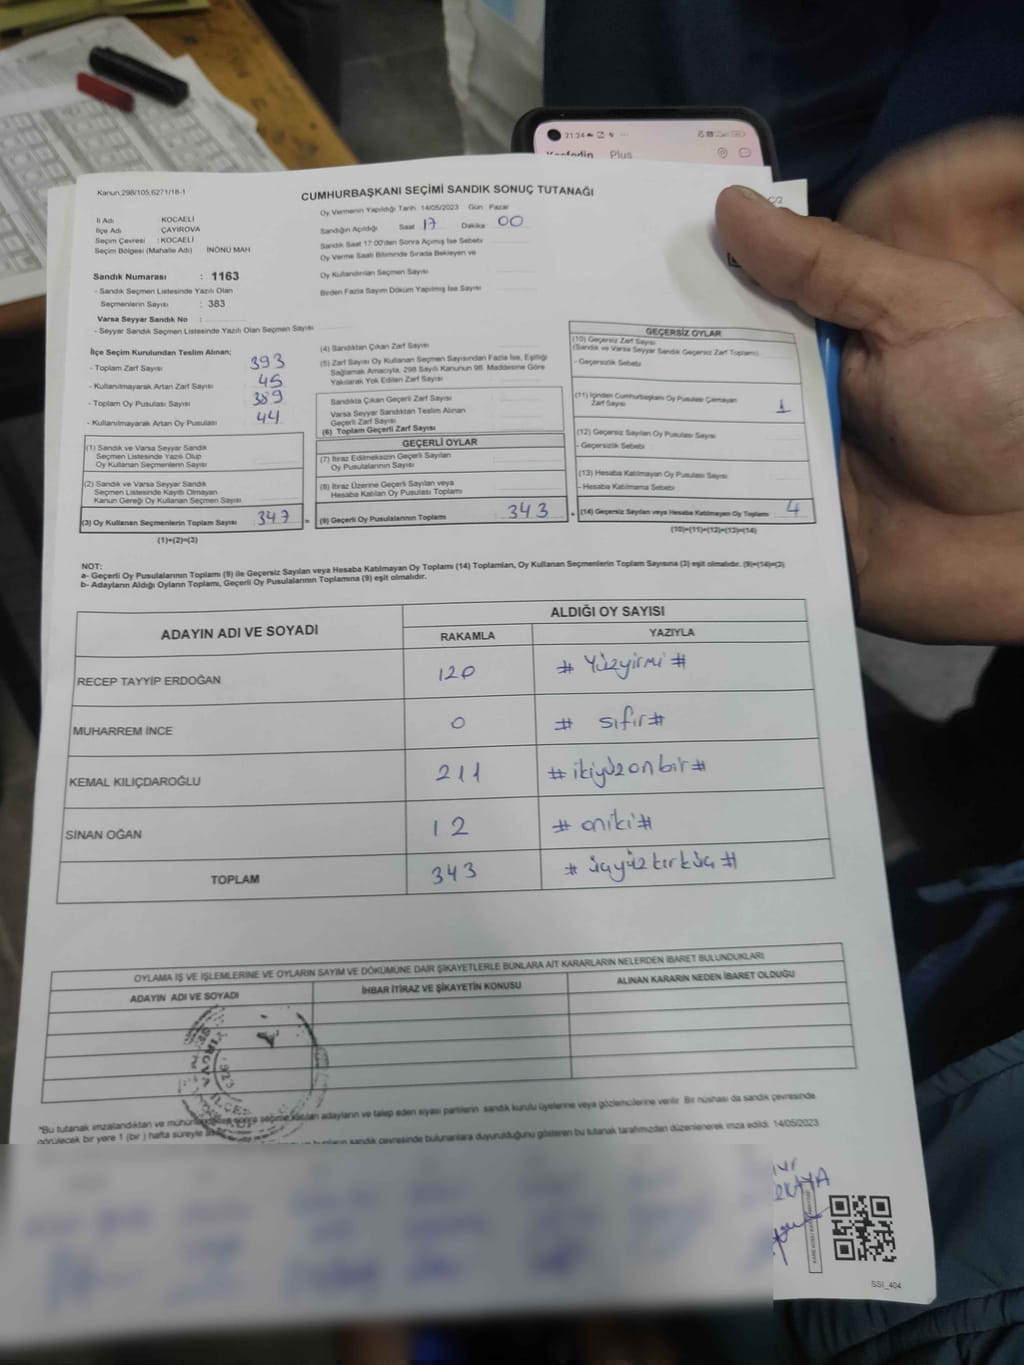 21:24
Plus
Kanun;298/105;6271/18-1
CUMHURBAŞKANI SEÇİMİ SANDIK SONUÇ TUTANAĞI
C/2
İl Adı : KOCAELİ
İlçe Adı : ÇAYIROVA
Seçim Çevresi : KOCAELİ
Seçim Bölgesi (Mahalle Adı) : İNÖNÜ MAH
Oy Vermenin Yapıldığı Tarih :14/05/2023 Gün : Pazar
Sandığın Açıldığı Saat 17 Dakika 00
Sandık Saat 17:00'den Sonra Açılmış İse Sebebi
Oy Verme Saati Bitiminde Sırada Bekleyen ve
Oy Kullandırılan Seçmen Sayısı
Birden Fazla Sayım Döküm Yapılmış İse Sayısı
Sandık Numarası : 1163
- Sandık Seçmen Listesinde Yazılı Olan
Seçmenlerin Sayısı : 383
Varsa Seyyar Sandık No :
- Seyyar Sandık Seçmen Listesinde Yazılı Olan Seçmen Sayısı
İlçe Seçim Kurulundan Teslim Alınan;
- Toplam Zarf Sayısı 393
- Kullanılmayarak Artan Zarf Sayısı 45
- Toplam Oy Pusulası Sayısı 389
- Kullanılmayarak Artan Oy Pusulası 44
(1) Sandık ve Varsa Seyyar Sandık
Seçmen Listesinde Yazılı Olup
Oy Kullanan Seçmenlerin Sayısı
(2) Sandık ve Varsa Seyyar Sandık
Seçmen Listesinde Kayıtlı Olmayan
Kanun Gereği Oy Kullanan Seçmen Sayısı
(3) Oy Kullanan Seçmenlerin Toplam Sayısı 347
(1)+(2)=(3)
(4) Sandıktan Çıkan Zarf Sayısı
(5) Zarf Sayısı Oy Kullanan Seçmen Sayısından Fazla İse, Eşitliği
Sağlamak Amacıyla, 298 Sayılı Kanunun 98. Maddesine Göre
Yakılarak Yok Edilen Zarf Sayısı
Sandıkta Çıkan Geçerli Zarf Sayısı
Varsa Seyyar Sandıktan Teslim Alınan
Geçerli Zarf Sayısı
(6) Toplam Geçerli Zarf Sayısı
GEÇERLİ OYLAR
(7) İtiraz Edilmeksizin Geçerli Sayılan
Oy Pusulalarının Sayısı
(8) İtiraz Üzerine Geçerli Sayılan veya
Hesaba Katılan Oy Pusulası Toplamı
= (9) Geçerli Oy Pusulalarının Toplamı 343
GEÇERSİZ OYLAR
(10) Geçersiz Zarf Sayısı
(Sandık ve Varsa Seyyar Sandık Geçersiz Zarf Toplamı)
- Geçersizlik Sebebi
(11) İçinden Cumhurbaşkanı Oy Pusulası Çıkmayan
Zarf Sayısı 1
(12) Geçersiz Sayılan Oy Pusulası Sayısı
- Geçersizlik Sebebi
(13) Hesaba Katılmayan Oy Pusulası Sayısı
- Hesaba Katılmama Sebebi
+ (14) Geçersiz Sayılan veya Hesaba Katılmayan Oy Toplamı 4
(10)+(11)+(12)+(13)=(14)
NOT:
a- Geçerli Oy Pusulalarının Toplamı (9) ile Geçersiz Sayılan veya Hesaba Katılmayan Oy Toplamı (14) Toplamları, Oy Kullanan Seçmenlerin Toplam Sayısına (3) eşit olmalıdır. (9)+(14)=(3)
b- Adayların Aldığı Oyların Toplamı, Geçerli Oy Pusulalarının Toplamına (9) eşit olmalıdır.
ADAYIN ADI VE SOYADI ALDIĞI OY SAYISI
RAKAMLA YAZIYLA
RECEP TAYYİP ERDOĞAN 120 # Yüzyirmi #
MUHARREM İNCE 0 # sıfır #
KEMAL KILIÇDAROĞLU 211 # ikiyüzonbir #
SİNAN OĞAN 12 # oniki #
TOPLAM 343 # üçyüzkırküç #
OYLAMA İŞ VE İŞLEMLERİNE VE OYLARIN SAYIM VE DÖKÜMÜNE DAİR ŞİKAYETLERLE BUNLARA AİT KARARLARIN NELERDEN İBARET BULUNDUKLARI
ADAYIN ADI VE SOYADI İHBAR İTİRAZ VE ŞİKAYETİN KONUSU ALINAN KARARIN NEDEN İBARET OLDUĞU
*Bu tutanak imzalandıktan ve sonra seçime katılan adayların ve talep eden siyasi partilerin sandık kurulu üyelerine veya gözlemcilerine verilir. Bir nüshası da sandık çevresinde
görülecek bir yere 1 (bir) hafta süreyle sandık çevresinde bulunanlara duyurulduğunu gösteren bu tutanak tarafımızdan düzenlenerek imza edildi. 14/05/2023
SSI_404